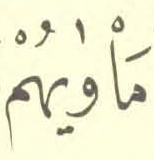 مَأْوٰيهُمْ